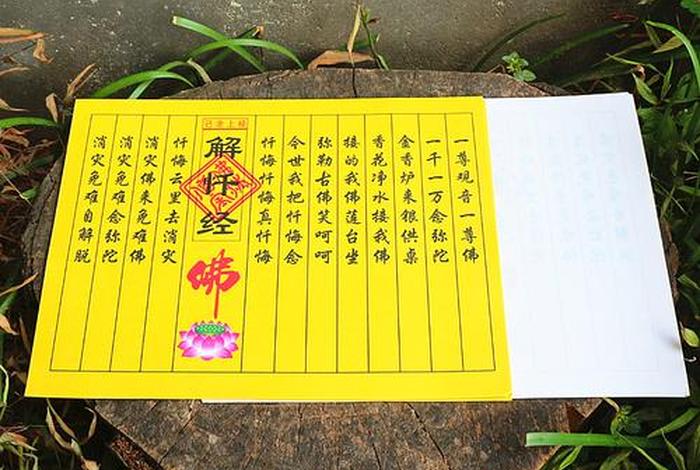 一尊观音一尊佛
一千一万念弥陀
金香炉来银供桌
香花净水接我佛
接的我佛莲台坐
弥勒古佛笑呵呵
今世我把忏悔念
忏悔忏悔真忏悔
解忏经
佛
忏悔云里去消灾
消灾佛来免难佛
消灾免难念弥陀
消灾免难自解脱